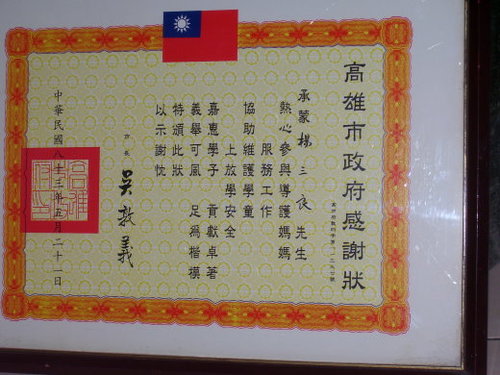 高雄市政府感謝狀
承蒙楊三良先生
熱心參與導護媽媽
服務工作
協助維護學童
上放學安全
嘉惠學子 貢獻卓著
義舉可風 足為楷模
特頒此狀
以示謝忱
市長 吳敦義
中華民國八十三年五月二十一日